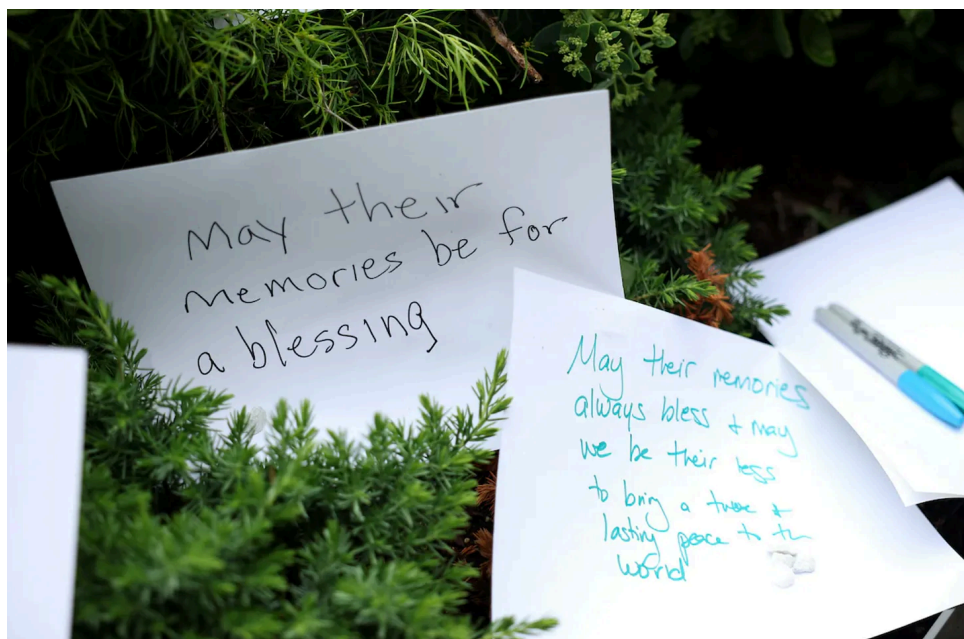 May their
memories be for
a blessing
May their memories
always bless & may
we be their legs
to bring a true &
lasting peace to the
world